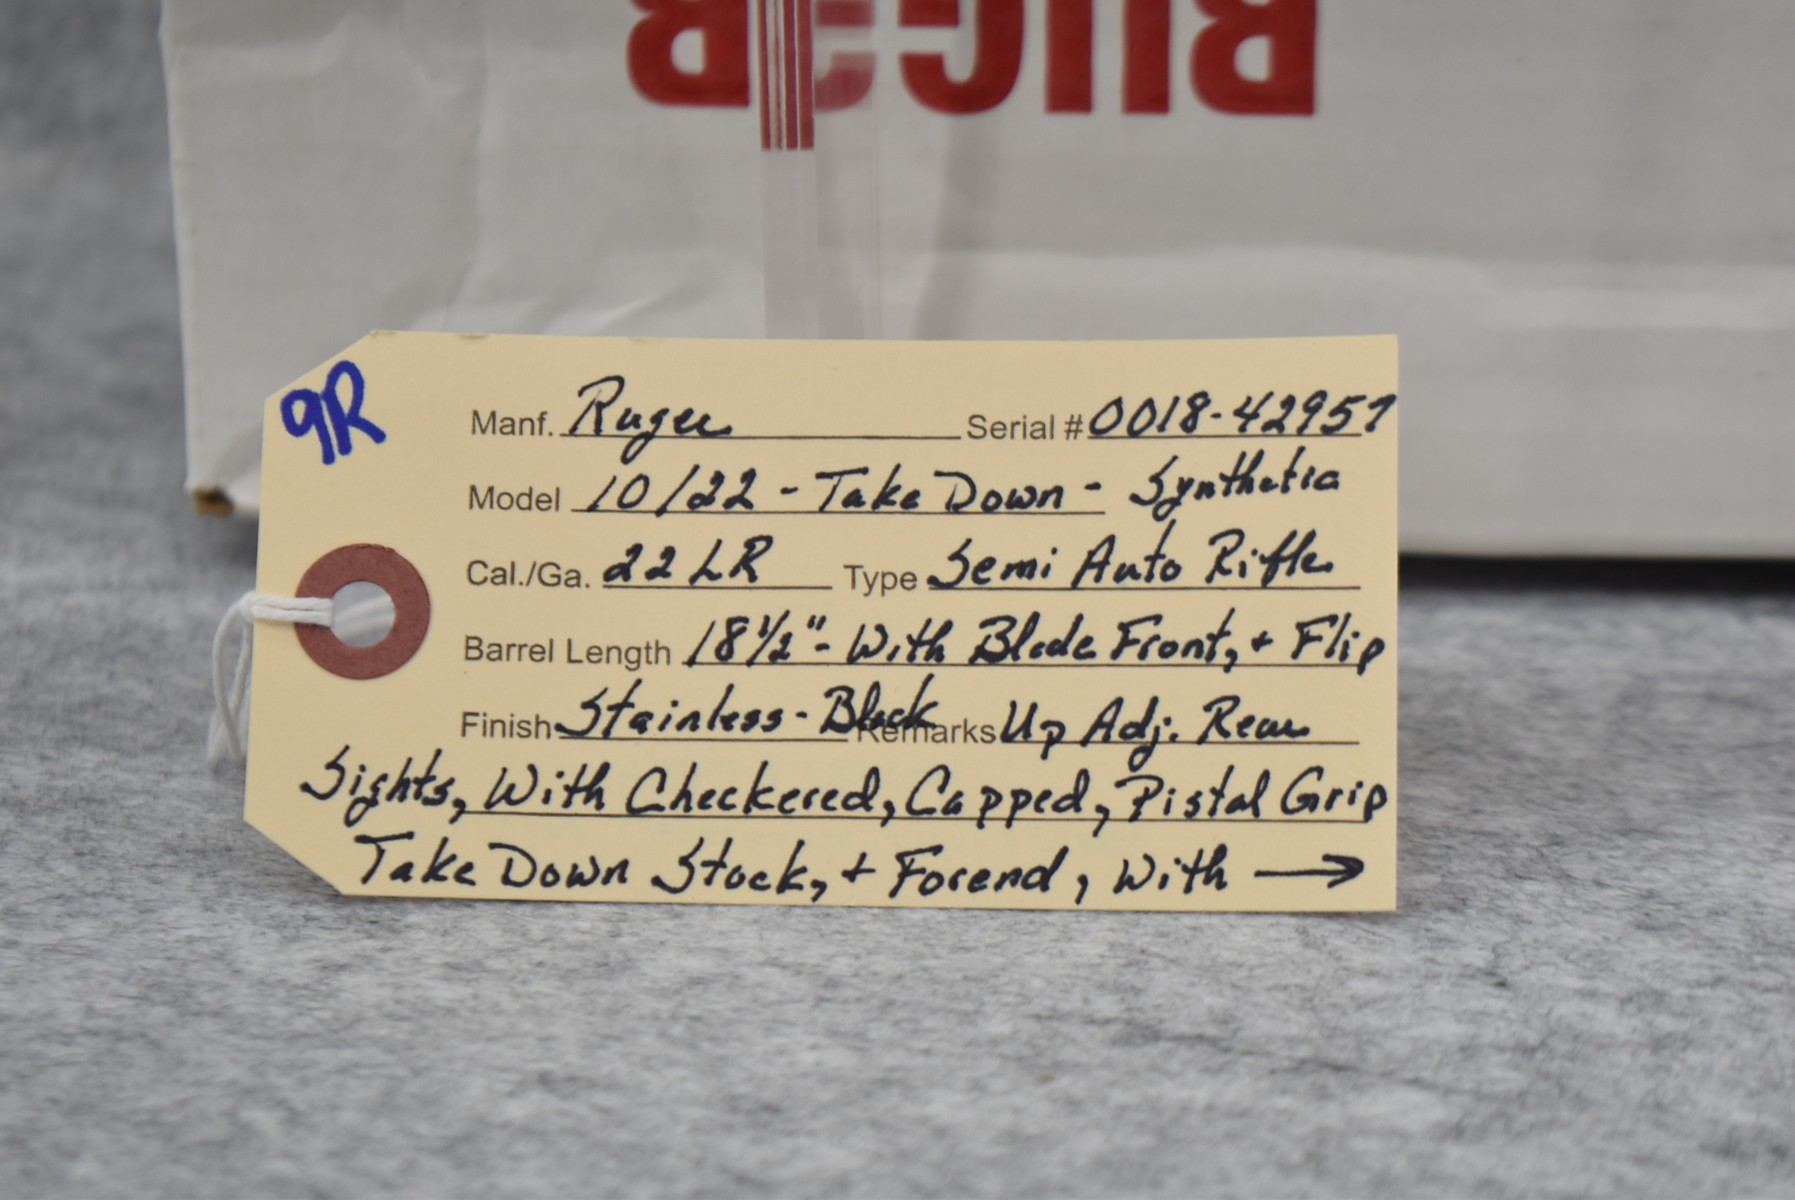 RUGER
9R
Manf. Ruger Serial # 0018-42957
Model 10/22 - Take Down - Synthetic
Cal./Ga. 22 LR Type Semi Auto Rifle
Barrel Length 18 1/2" - With Blade Front, + Flip
Finish Stainless - Black Remarks Up Adj. Rear
Sights, With Checkered, Capped, Pistol Grip
Take Down Stock, + Forend, With →